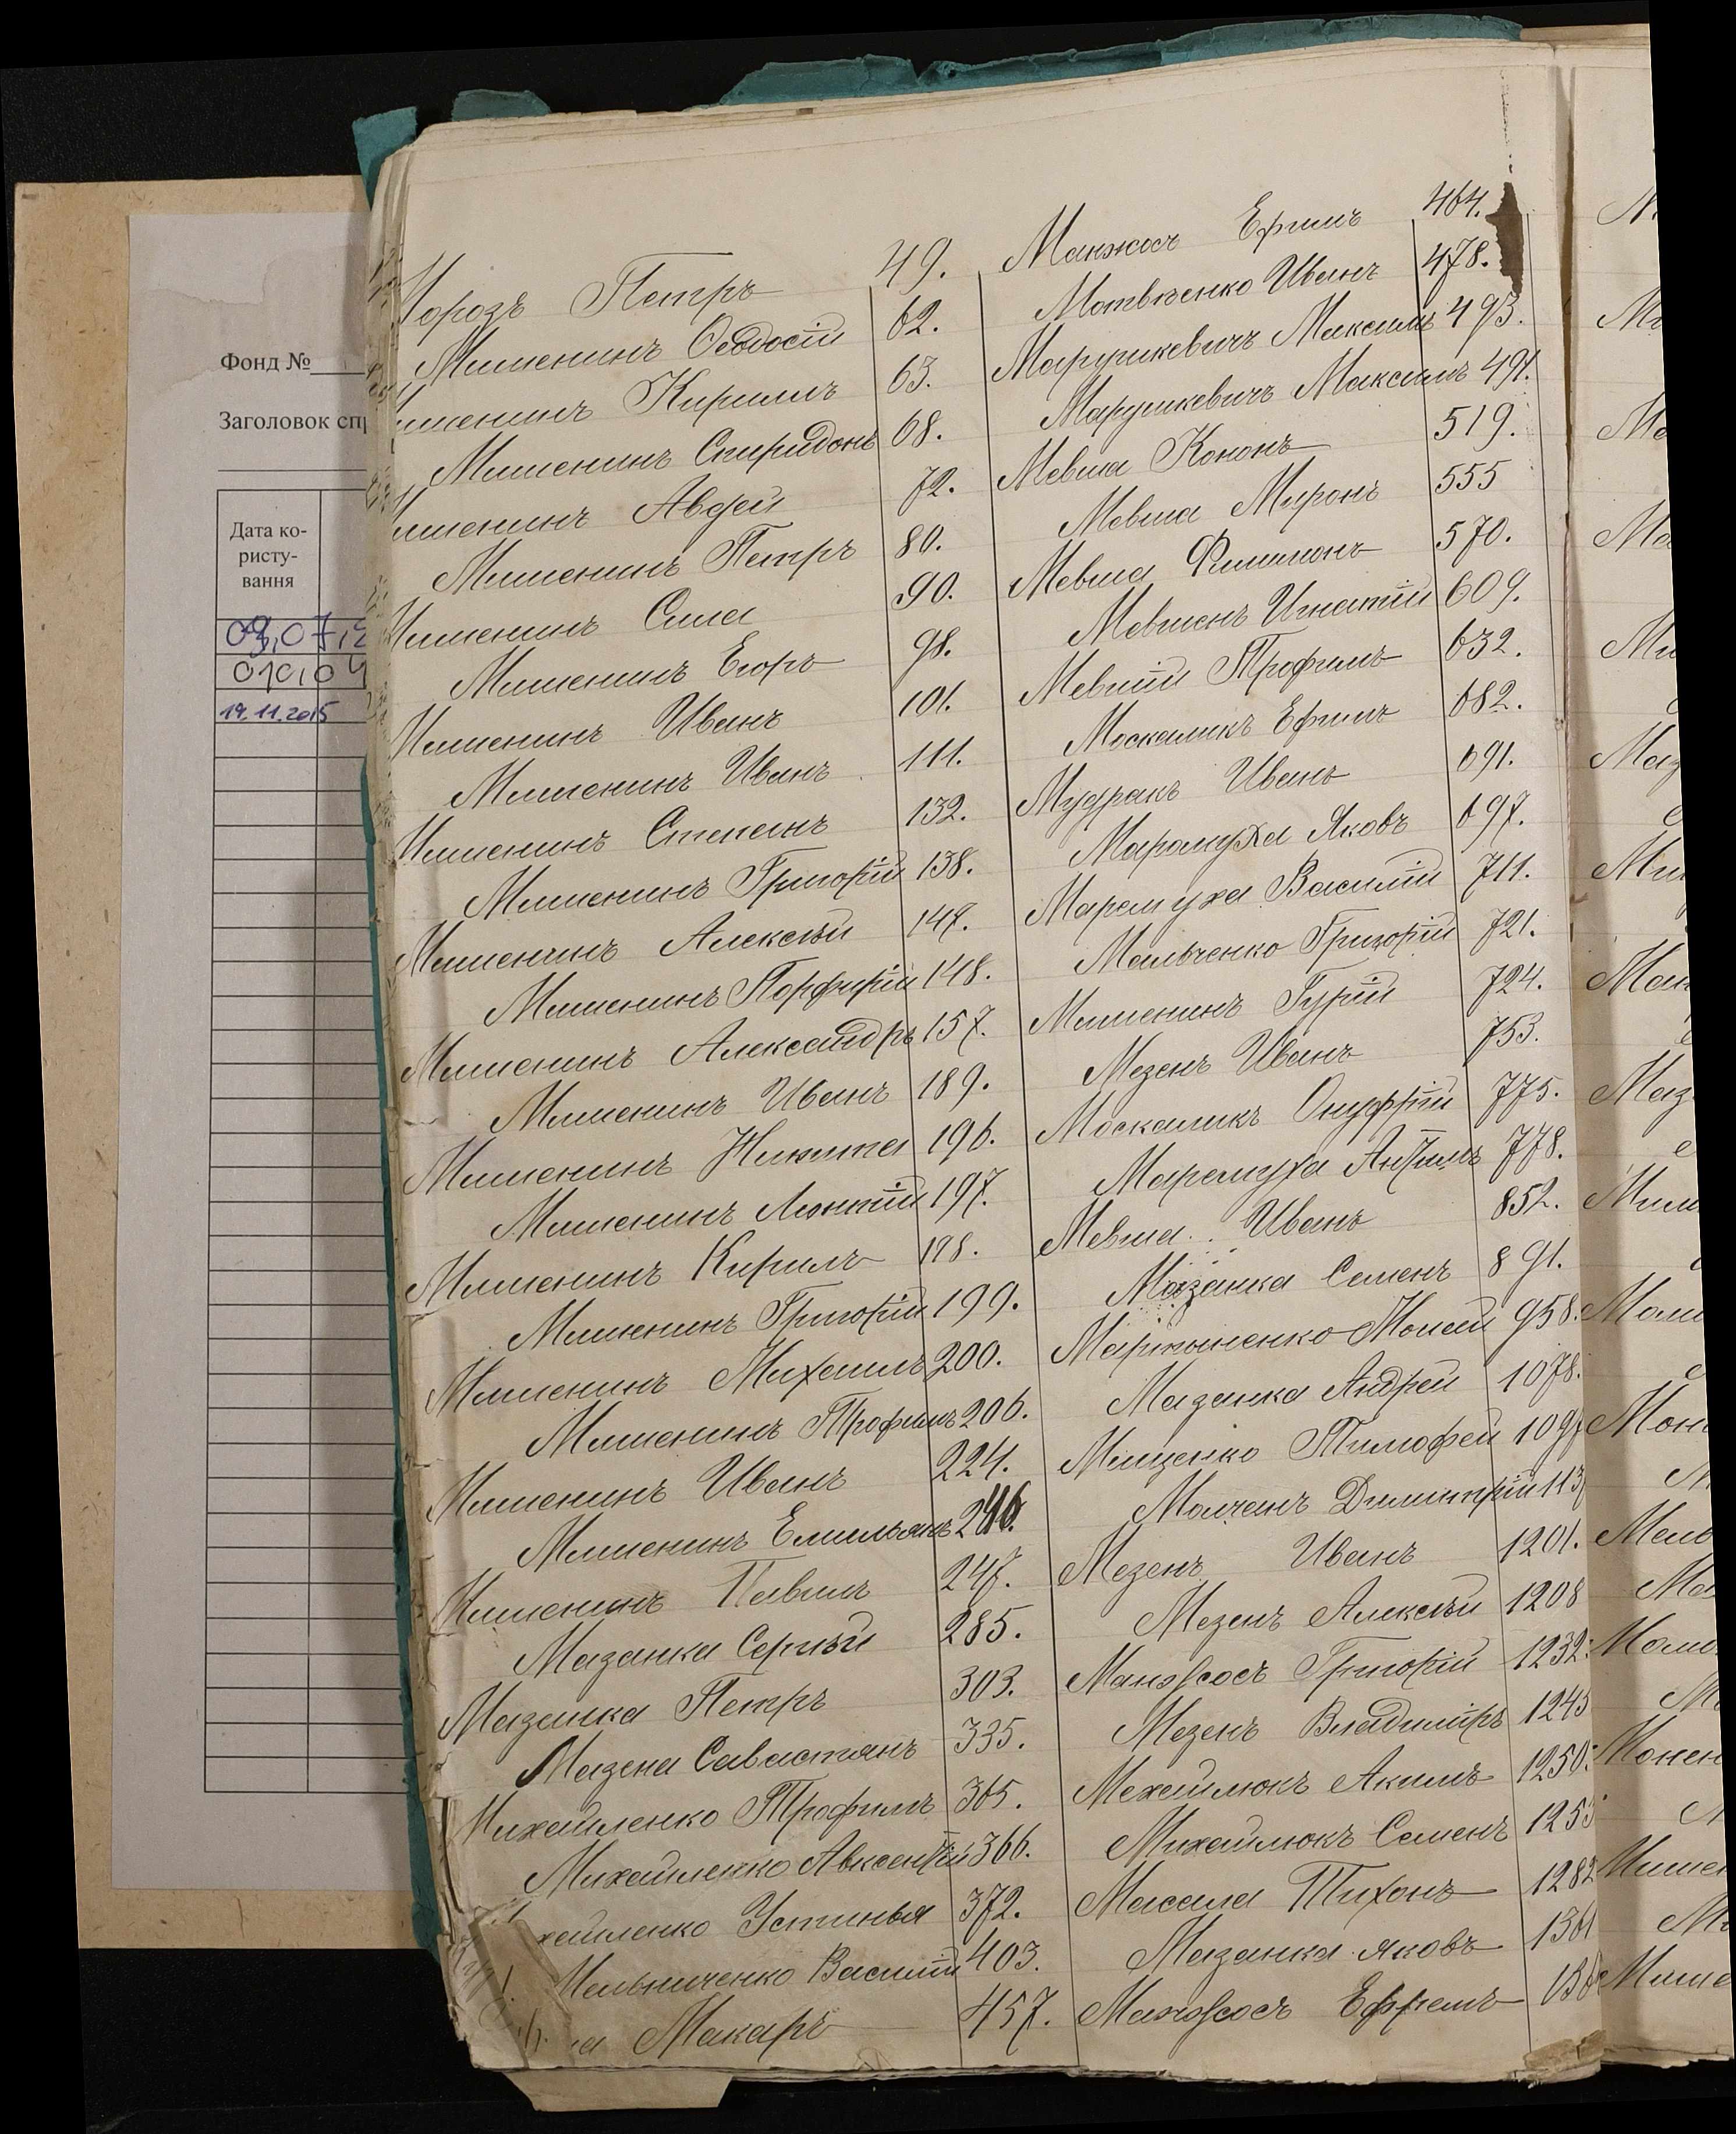 Фонд №
Заголовок спр
Дата ко-
ристу-
вання
19.11.2015
Морозъ Петръ 49.
Мишенинъ Ѳеодосій 62.
Мишенинъ Кириллъ 63.
Мишенинъ Спиридонъ 68.
Мишенинъ Авдей 72.
Мишенинъ Петръ 80.
Мишенинъ Сила 90.
Мишенинъ Егоръ 98.
Мишенинъ Иванъ 101.
Мишенинъ Иванъ 111.
Мишенинъ Степанъ 132.
Мишенинъ Григорій 138.
Мишенинъ Алексѣй 147.
Мишенинъ Порфирій 148.
Мишенинъ Александръ 157.
Мишенинъ Иванъ 189.
Мишенинъ Никита 196.
Мишенинъ Леонтій 197.
Мишенинъ Кирилъ 198.
Мишенинъ Григорій 199.
Мишенинъ Михаилъ 200.
Мишенинъ Трофимъ 206.
Мишенинъ Иванъ 224.
Мишенинъ Емильянъ 246.
Мишенинъ Павелъ 247.
Мазанка Сергѣй 285.
Мазанка Петръ 303.
Мазена Савастянъ 335.
Михайленко Трофимъ 365.
Михайленко Авксентій 366.
хайленко Устинья 372.
Мельниченко Василій 403.
а Макаръ 457.
Манжосъ Ефимъ 464.
Матвѣенко Иванъ 478.
Марушкевичъ Максимъ 493.
Марушкевичъ Максимъ 491.
Мевша Кононъ 519.
Мевша Миронъ 555
Мевша Филимонъ 570.
Мевшенъ Игнатій 609.
Мевшій Трофимъ 632.
Москаликъ Ефимъ 682.
Мудракъ Иванъ 691.
Марамуха Яковъ 697.
Марамуха Василій 711.
Мальченко Григорій 721.
Мишенинъ Гурій 724.
Мезенъ Иванъ 753.
Москаликъ Онуфрій 775.
Марамуха Антипъ 778.
Мевша Иванъ 852.
Мазанка Семенъ 891.
Мартыненко Моисей 958.
Мазанка Андрей 1078.
Мищенко Тимофей 1097
Молчанъ Димитрій 113
Мезенъ Иванъ 1201.
Мезенъ Алексѣй 1208
Манжосъ Григорій 1232.
Мезенъ Владиміръ 1245
Михайлюкъ Акимъ 1250.
Михайлюкъ Семенъ 1255
Масала Тихонъ 1282
Мазанка Яковъ 1361
Манжосъ Ефремъ